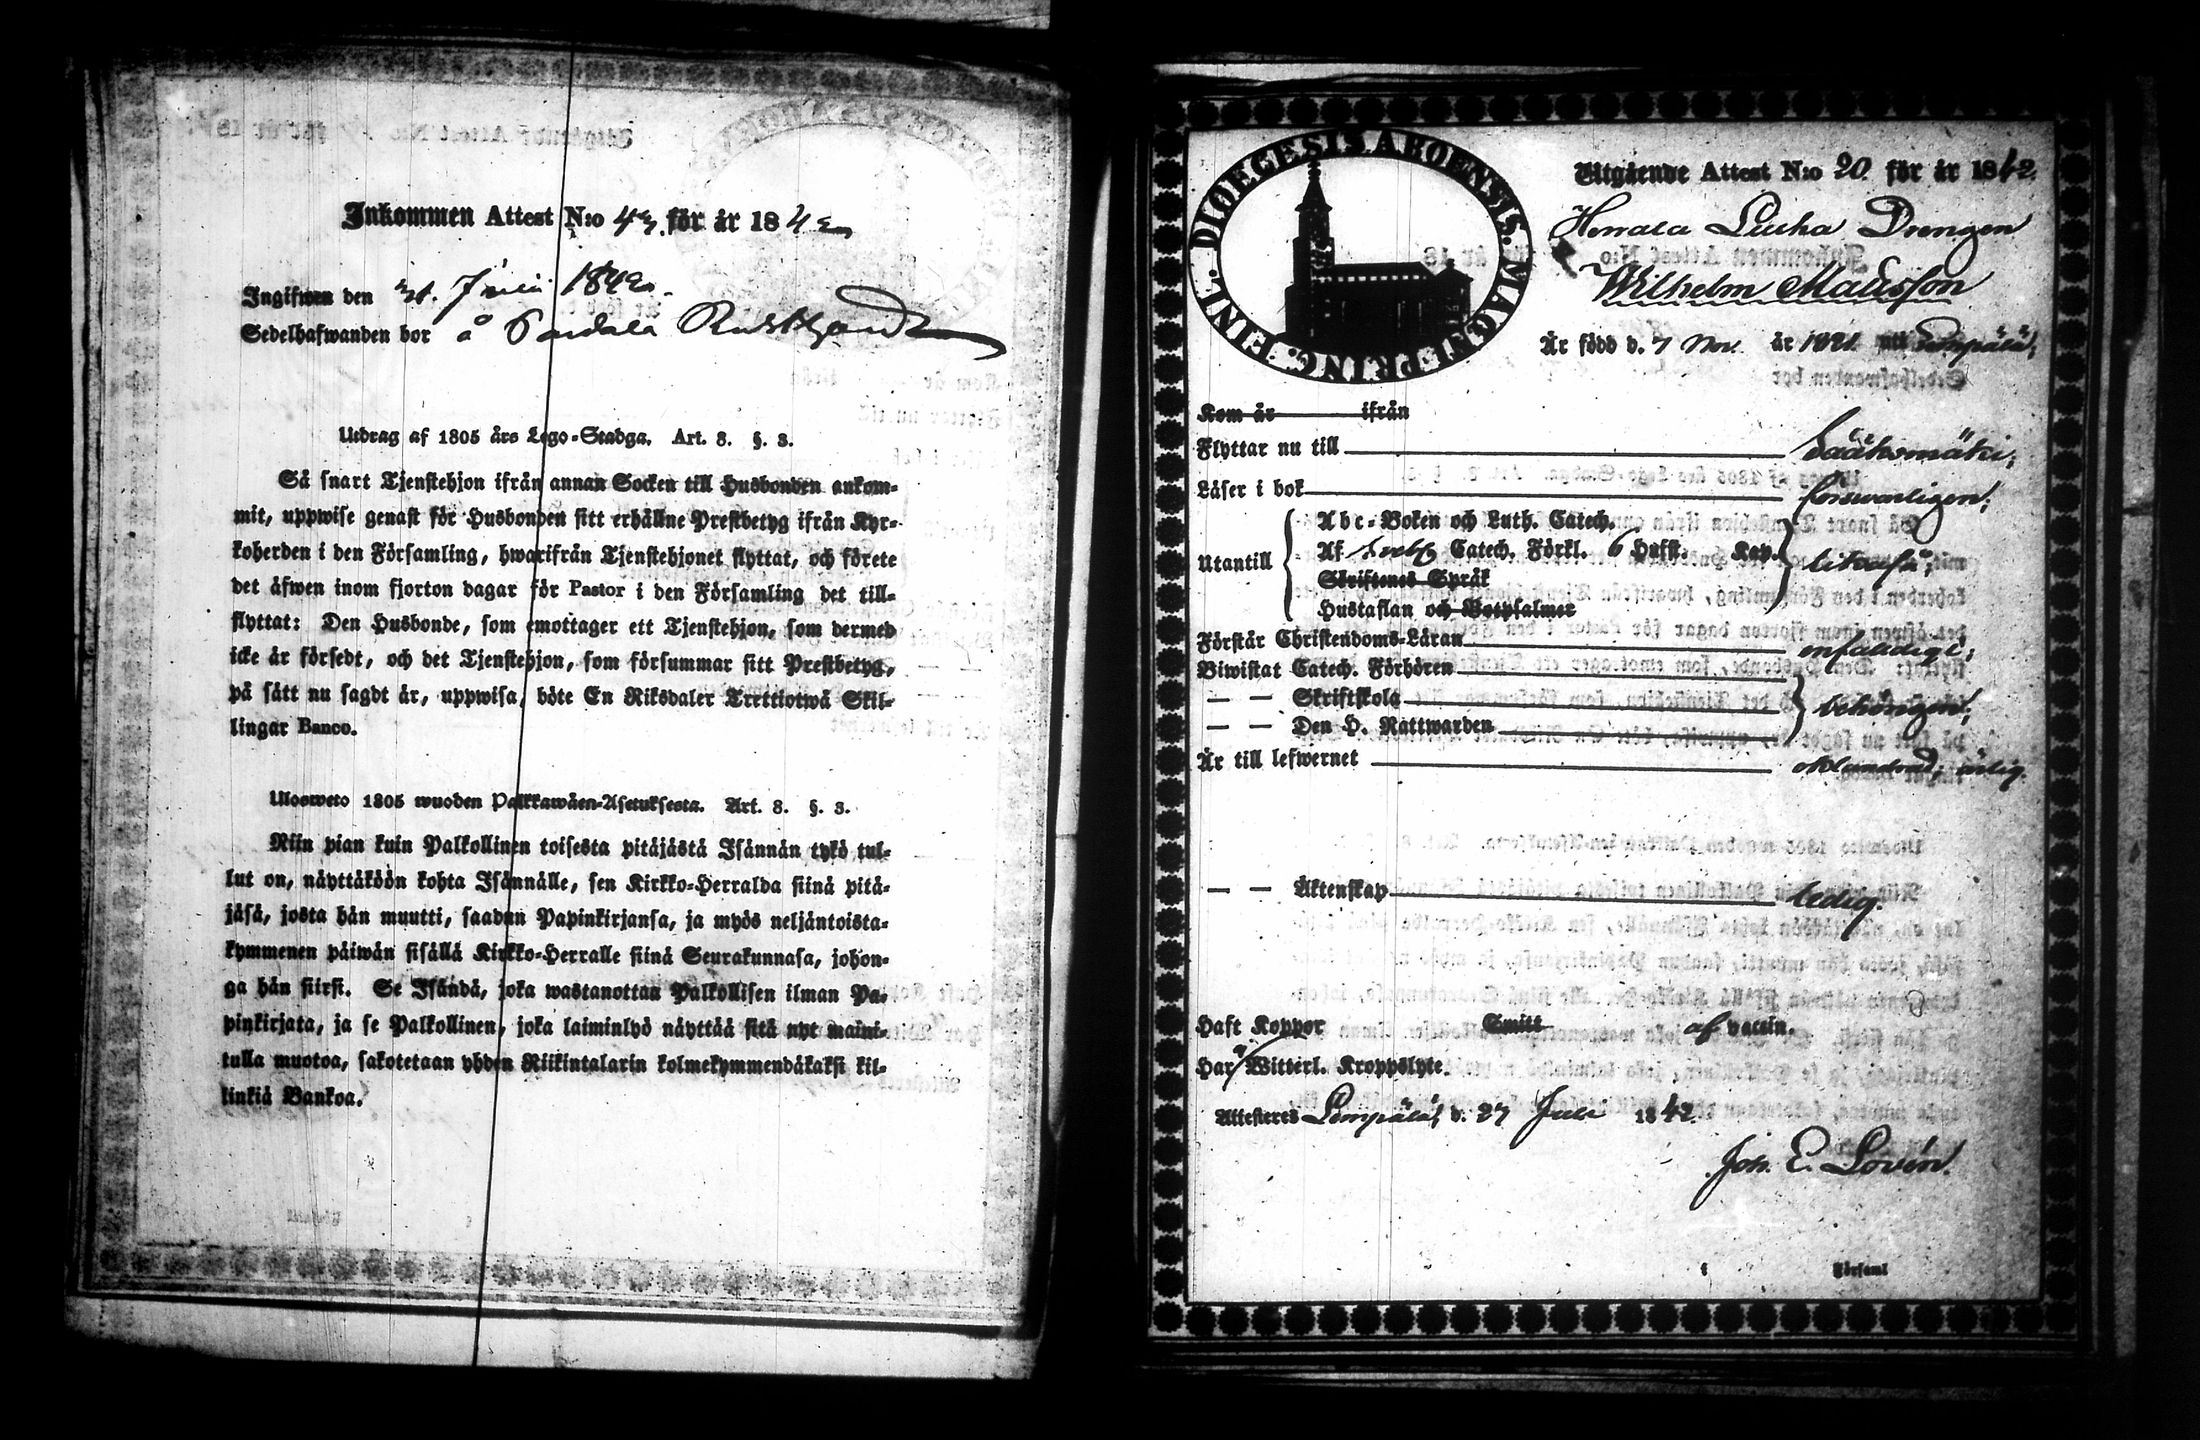 Inkommen Attest N:o 42. för år 1842
Ingifwen den 31. Juli 1842.
Sedelhafwanden bor å
Utdrag af 1805 års Lego-Stadga. Art. 8. §. 3.
Så snart Tjenstehjon ifrån annan Socken till Husbonden ankom-
mit, uppwise genast för Husbonden sitt erhållne Prestbetyg ifrån Kyr-
koherden i den Församling, hwarifrån Tjenstehjonet flyttat, och förete
det äfwen inom fjorton dagar för Pastor i den Församling det till-
flyttat: Den Husbonde, som emottager ett Tjenstehjon, som dermed
icke är försedt, och det Tjenstehjon, som försummar sitt Prestbetyg,
på sätt nu sagdt är, uppwisa, böte En Riksdaler Trettiotwå Skil-
lingar Banco.
Ulosweto 1805 wuoden Palkkawäen-Asetuksesta. Art. 8. §. 3.
Niin pian kuin Palkollinen toisesta pitäjästä Isännän tykö tul-
lut on, näyttäköön kohta Isännälle, sen Kirkko-Herralda siinä pitä-
jäsä, josta hän muutti, saadun Papinkirjansa, ja myös neljäntoista-
kymmenen päiwän sisällä Kirkko-Herralle siinä Seurakunnasa, johon-
ga hän siirsi. Se Isändä, joka wastanottaa Palkollisen ilman Pa-
pinkirjata, ja se Palkollinen, joka laiminlyö näyttää sitä nyt maini-
tulla muotoa, sakotetaan yhden Riikintalarin kolmekymmendäkaksi kil-
linkiä Bankoa.
DIOECESIS ABOENSIS. MAGNI PRINC. FINL.
Utgående Attest N:o 20. för år 1842.
Herrala Drengen
Wilhelm Mattsson
Är född d. 7 Nov. år 1821 uti Lempälä;
Kom år ifrån
Flyttar nu till Sääksmäki;
Läser i bok forswarligen;
Utantill
Abc-Boken och Luth. Catech.
Af Catech. Förkl. 6 Hufst. Kap.
Skriftenes Språk
Hustaflan och Botpsalmer
Förstår Christendoms-Läran enfaldigt;
Biwistat Catech. Förhören
— — Skriftskola behörigen;
— — Den H. Nattwarden
Är till lefwernet oklandrad, ärlig.
— — Äktenskap ledig.
Haft Koppor Smitt af vaccin.
Har Witterl. Kroppslyte.
Attesteres Lempälä, d. 27 Juli 1842.
Joh. E. Lovén.
Församl